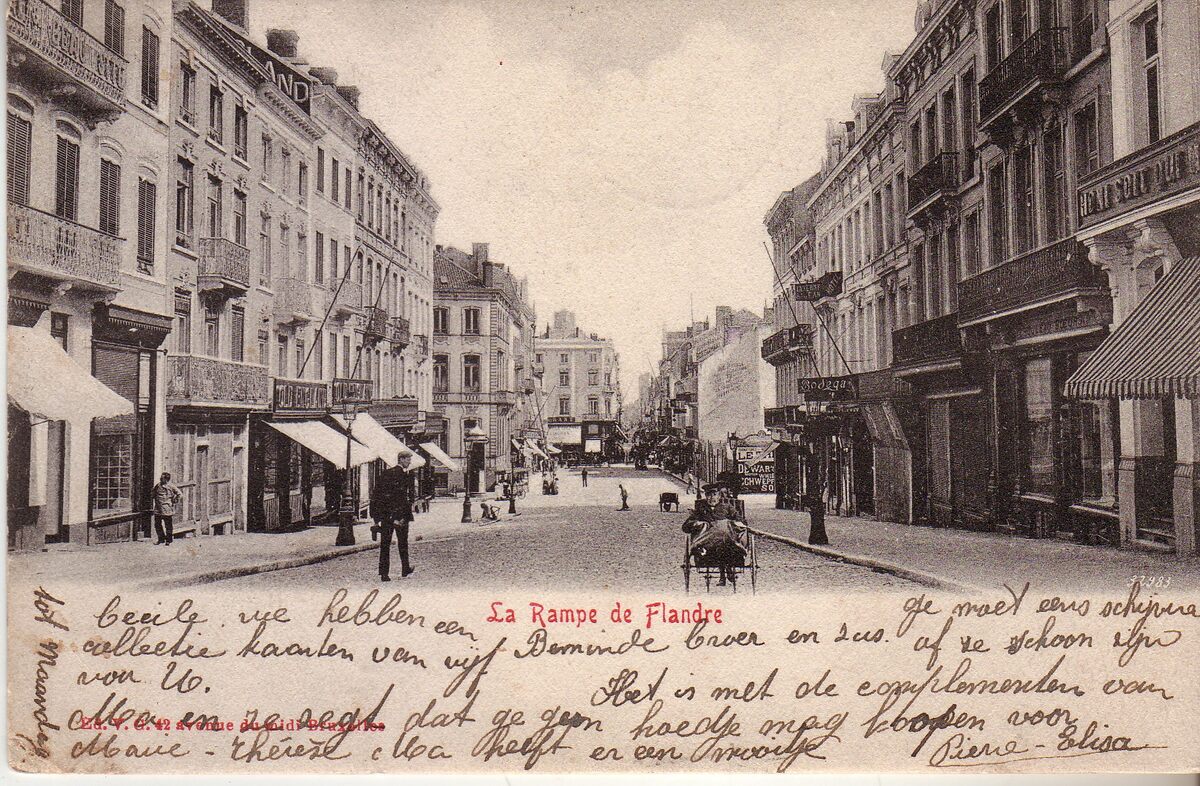 AND
HONI SOIT QUI
Bodega
DEWAR
SCHWEPP
SO
37983
La Rampe de Flandre
Cecile, we hebben een
collectie kaarten van vijf
voor U.
Beminde broer en zus.
ge moet eens schijven
of ze schoon zijn
Het is met de complementen van
Moe en ze zegt dat ge geen hoedje mag koopen voor
Marie-Thérèse Ma heeft er een mooitje
Pierre-Elisa
tot Maandag
Ed. V. G. 42 avenue du midi Bruxelles